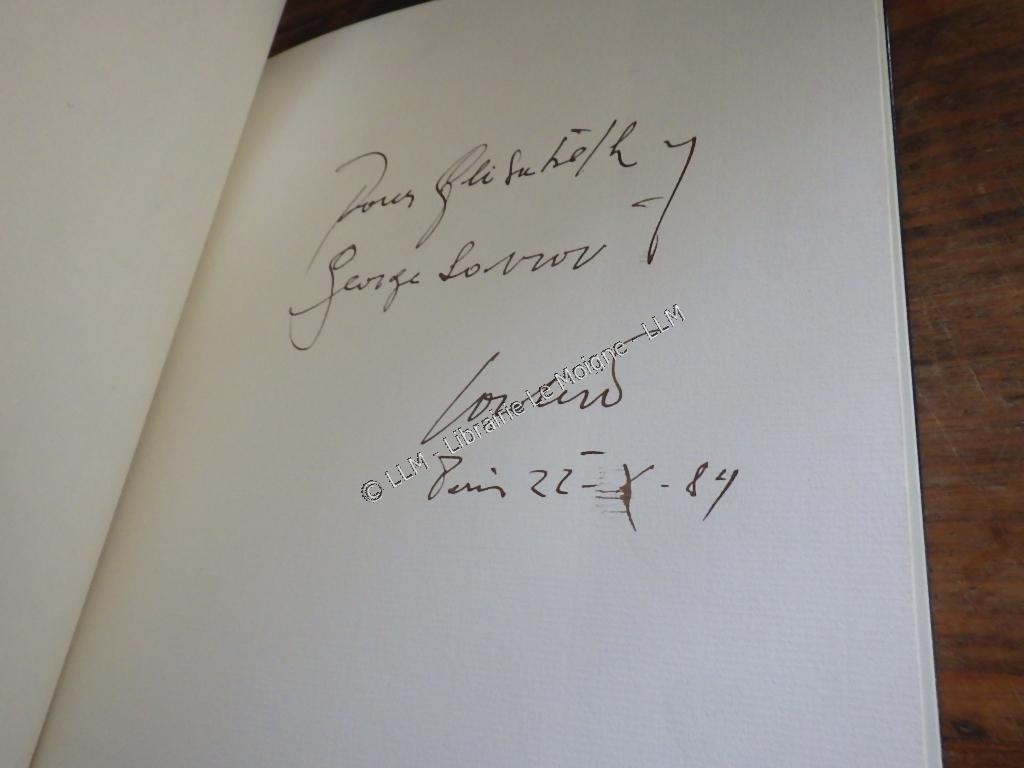 Pour Elisabeth y
George
© LLM - Librairie Le Moigne - LLM
Paris 22 - X - 84